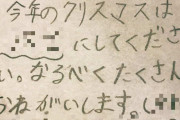 今年のクリスマスは
にしてくださ
い。なるべくたくさん
おねがいします。